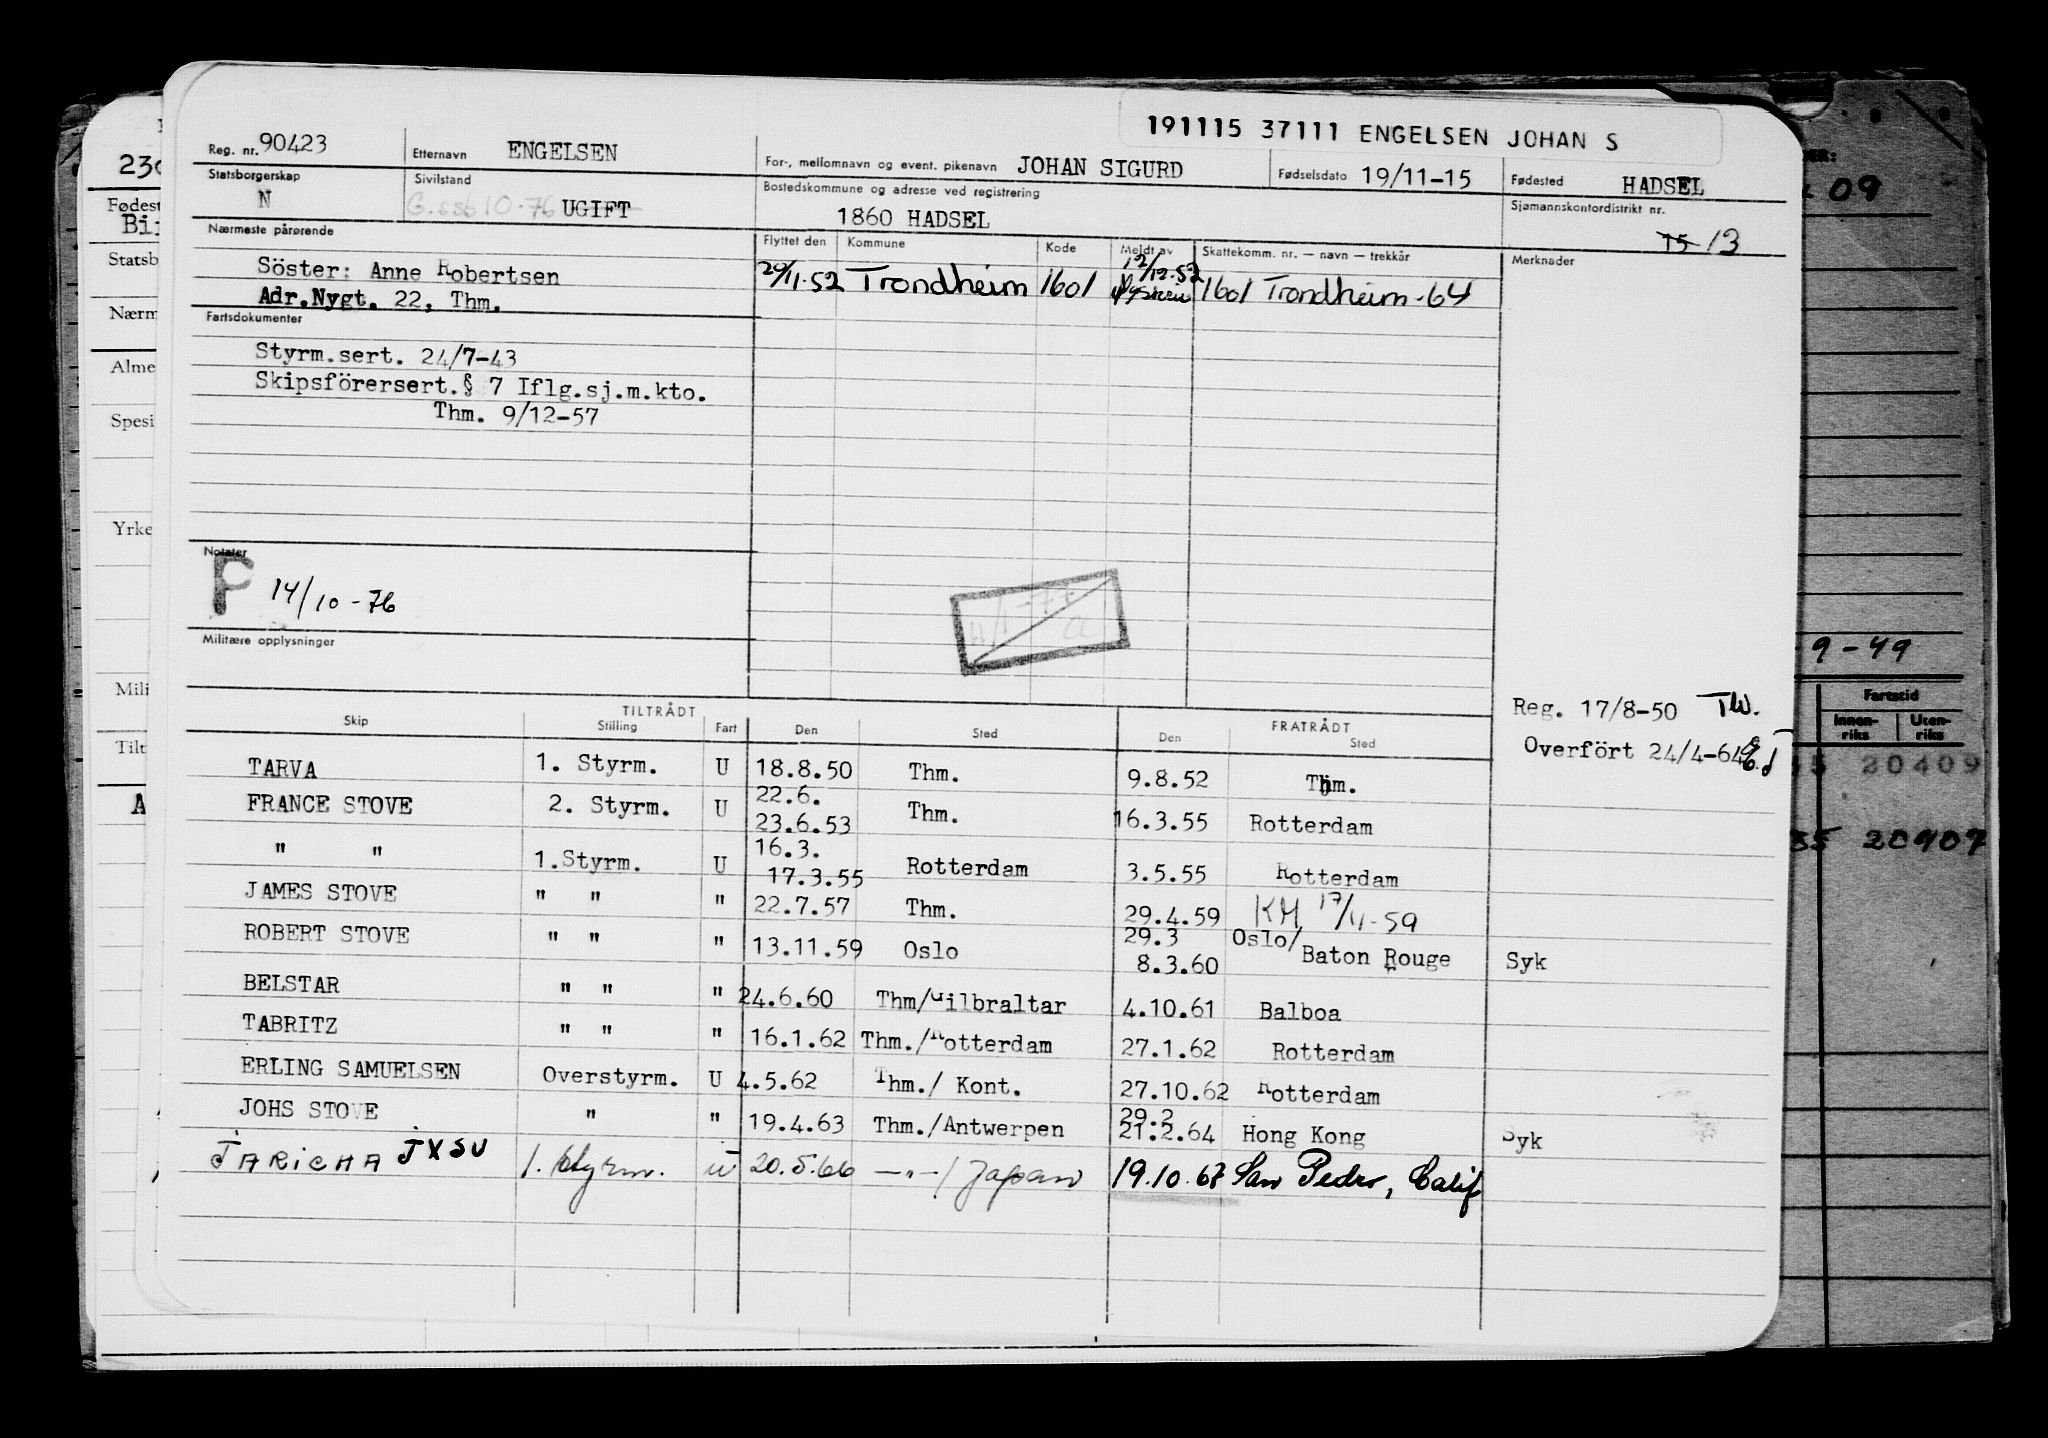 191115 37111 ENGELSEN JOHAN S
Reg. nr. 90423 Etternavn ENGELSEN For-, mellomnavn og event. pikenavn JOHAN SIGURD Fødselsdato 19/11-15 Fødested HADSEL
Statsborgerskap N Sivilstand G. 10.76 UGIFT Bostedskommune og adresse ved registrering 1860 HADSEL Sjømannskontordistrikt nr. 15 13
Nærmeste pårørende Flyttet den Kommune Kode Meldt av Skattekomm. nr. — navn — trekkår Merknader
Söster: Anne Robertsen 29/11.52 Trondheim 1601 12/12.52 1601 Trondheim-64
Adr.Nygt. 22, Thm.
Fartsdokumenter
Styrm.sert. 24/7-43
Skipsförersert.§ 7 Iflg.sj.m.kto.
Thm. 9/12-57
Notater
F 14/10-76
Militære opplysninger
Reg. 17/8-50
Overfört 24/4-64
TILTRÅDT FRATRÅDT
Skip Stilling Fart Den Sted Den Sted
TARVA 1. Styrm. U 18.8.50 Thm. 9.8.52 Thm.
FRANCE STOVE 2. Styrm. U 22.6. 23.6.53 Thm. 16.3.55 Rotterdam
" " 1.Styrm. U 16.3. 17.3.55 Rotterdam 3.5.55 Rotterdam
JAMES STOVE " " " 22.7.57 Thm. 29.4.59 KM 17/11-59
ROBERT STOVE " " " 13.11.59 Oslo 29.3 8.3.60 Oslo/ Baton Rouge Syk
BELSTAR " " " 24.6.60 Thm/Gilbraltar 4.10.61 Balboa
TABRITZ " " " 16.1.62 Thm./Rotterdam 27.1.62 Rotterdam
ERLING SAMUELSEN Overstyrm. U 4.5.62 Thm./ Kont. 27.10.62 Rotterdam
JOHS STOVE " " 19.4.63 Thm./Antwerpen 29.2 21.2.64 Hong Kong Syk
TARICHA JXSU 1. Styrm. u 20.5.66 —"—/ Japan 19.10.67 San Pedro, Calif
230
Fødest
Bi
Statsb
Nærm
Alme
Spesi
Yrke
Mili
Tilt
A
09
-9-49
Fartstid
Innen-riks Uten-riks
20409
35 20907